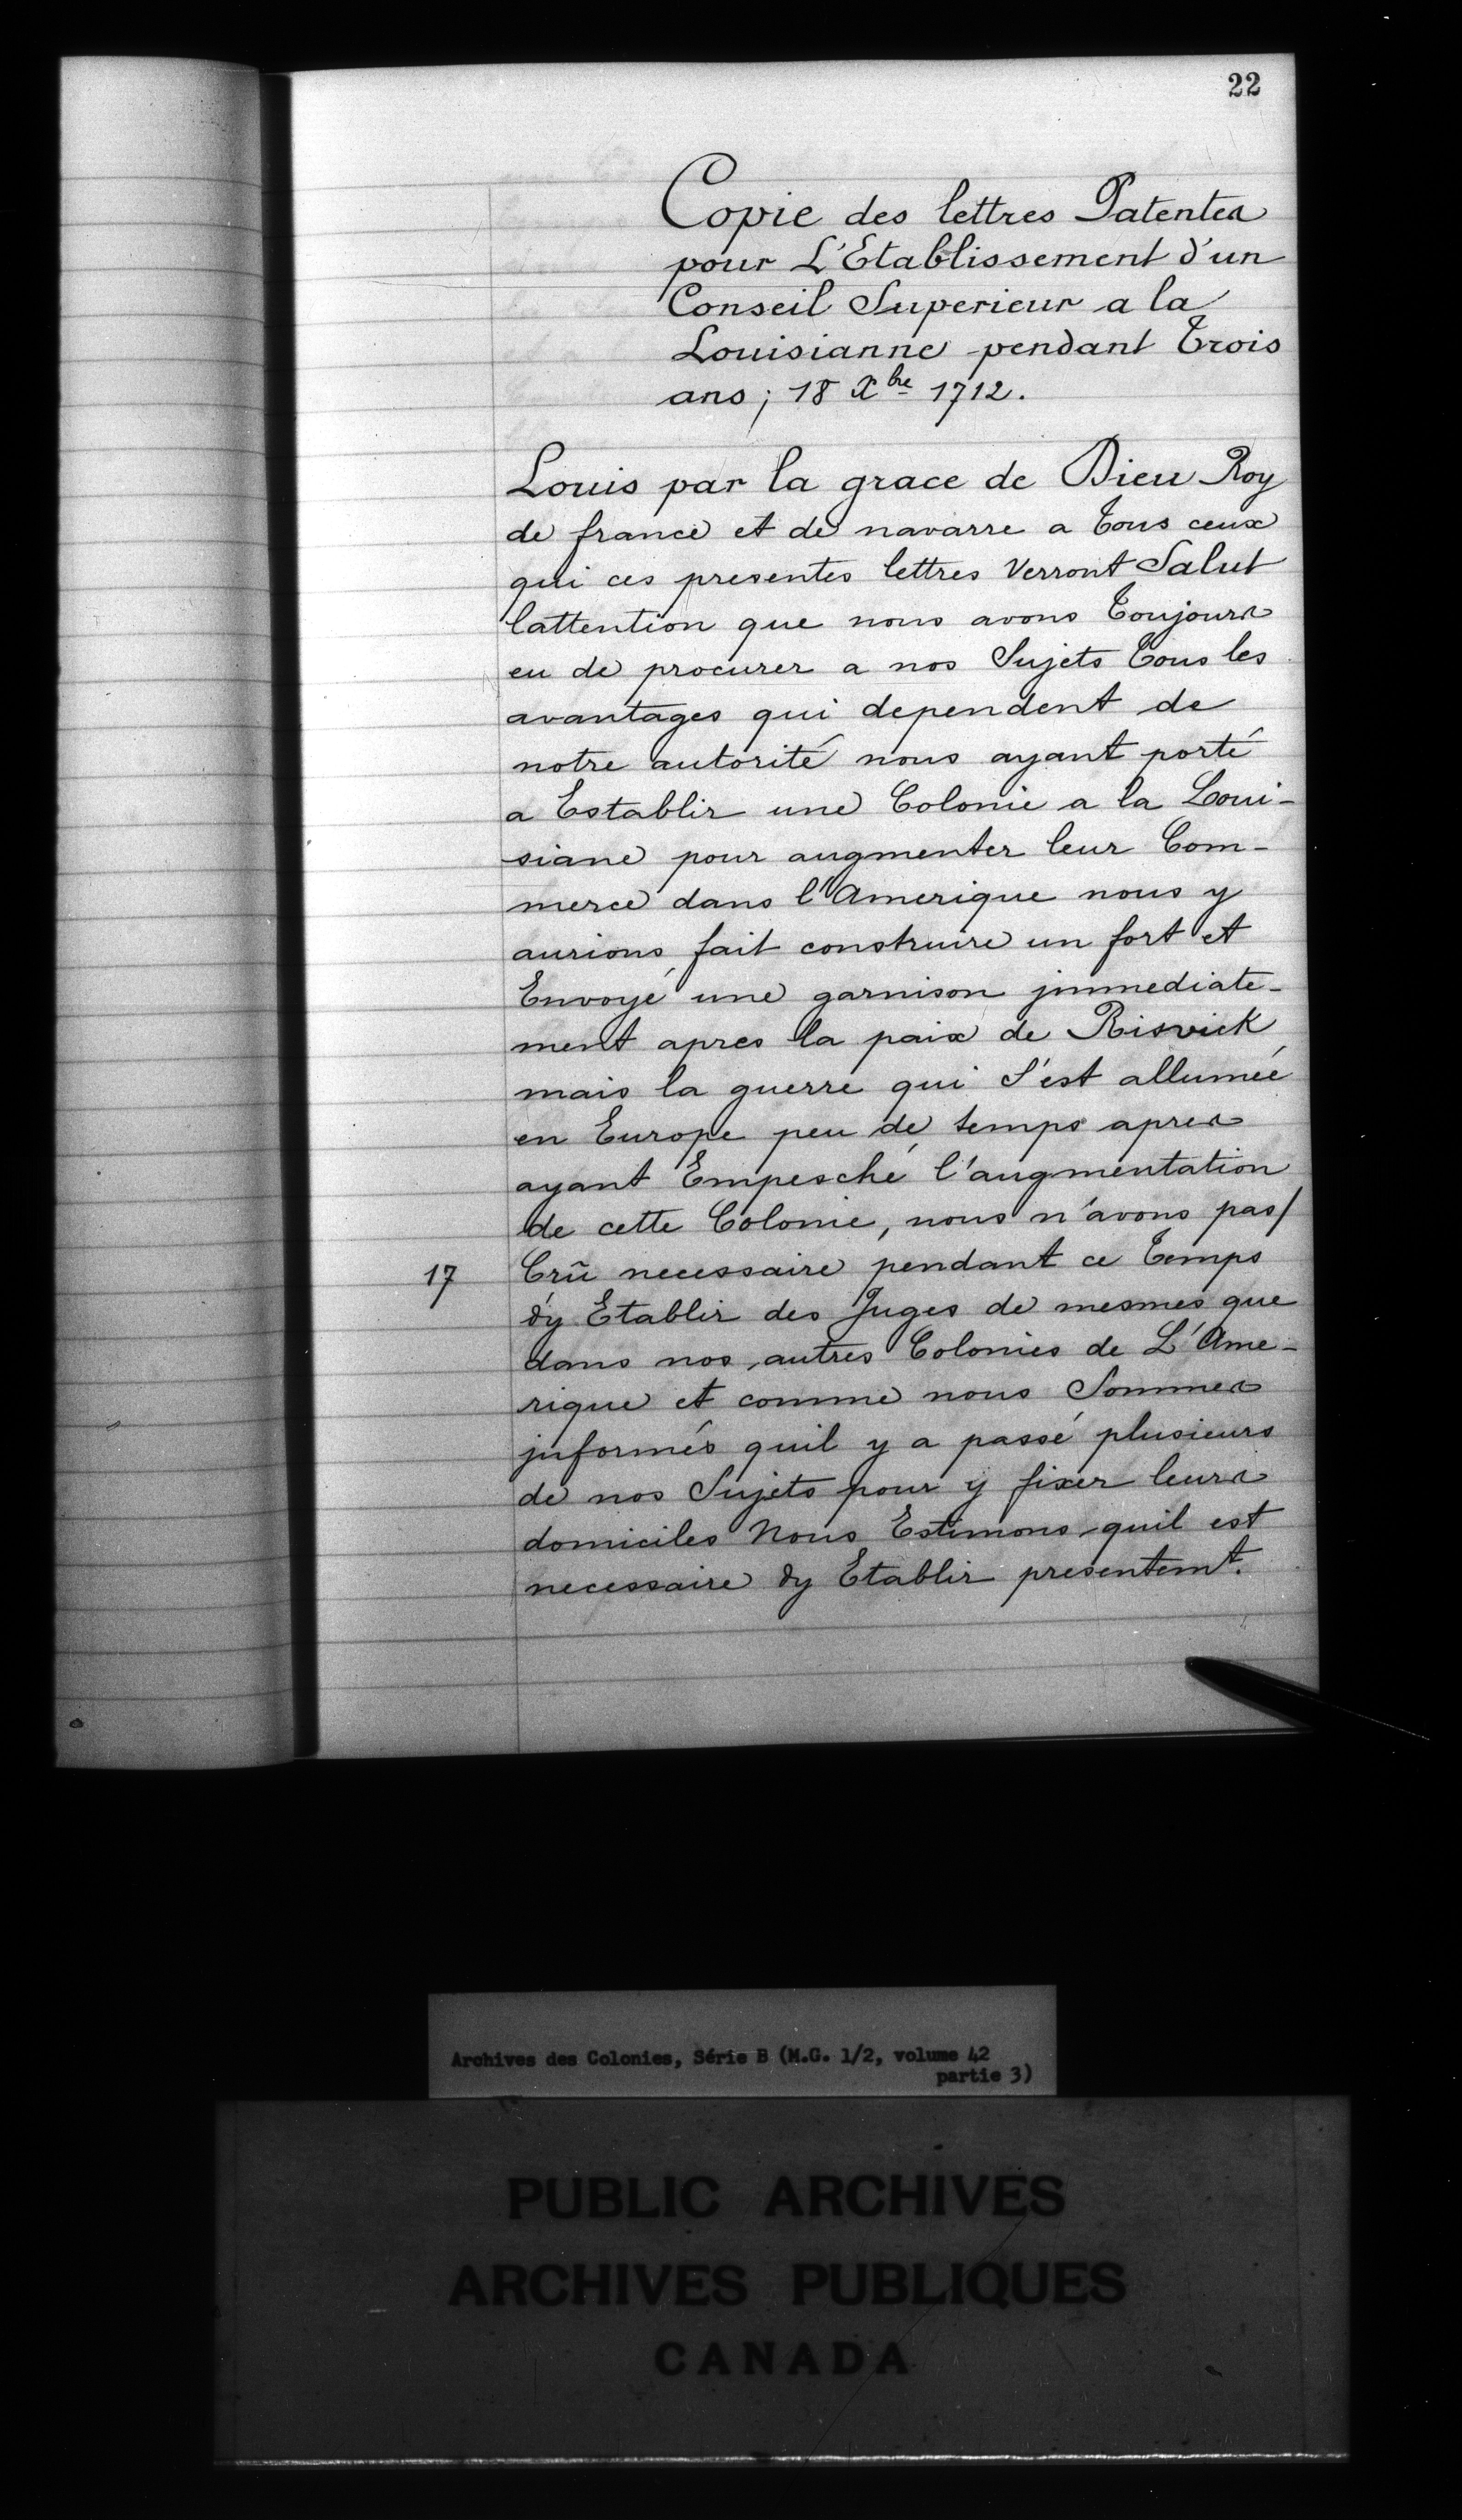 22
Copie des lettres Patentes
pour L'Etablissement d'un
Conseil Superieur a la
Louisianne pendant Trois
ans ; 18 Xbre 1712.
Louis par la grace de Dieu Roy
de france et de navarre a Tous ceux
qui ces presentes lettres Verront Salut
lattention que nous avons Toujours
eu de procurer a nos Sujets Tous les
avantages qui dependent de
notre autorité nous ayant porté
a Establir une Colonie a la Loui-
siane pour augmenter leur Com-
merce dans l'Amerique nous y
aurions fait construire un fort et
Envoyé une garnison jmmediate-
ment apres la paix de Risvick
mais la guerre qui S'est allumée
en Europe peu de temps apres
ayant Empesché l'augmentation
de cette Colonie, nous n'avons pas/
17 Crû necessaire pendant ce Temps
d'y Etablir des Juges de mesmes que
dans nos autres Colonies de L'Ame-
rique et comme nous Sommes
jnformés quil y a passé plusieurs
de nos Sujets pour y fixer leurs
domiciles Nous Estimons quil est
necessaire dy Etablir presentemt.
Archives des Colonies, Série B (M.G. 1/2, volume 42
partie 3)
PUBLIC ARCHIVES
ARCHIVES PUBLIQUES
CANADA